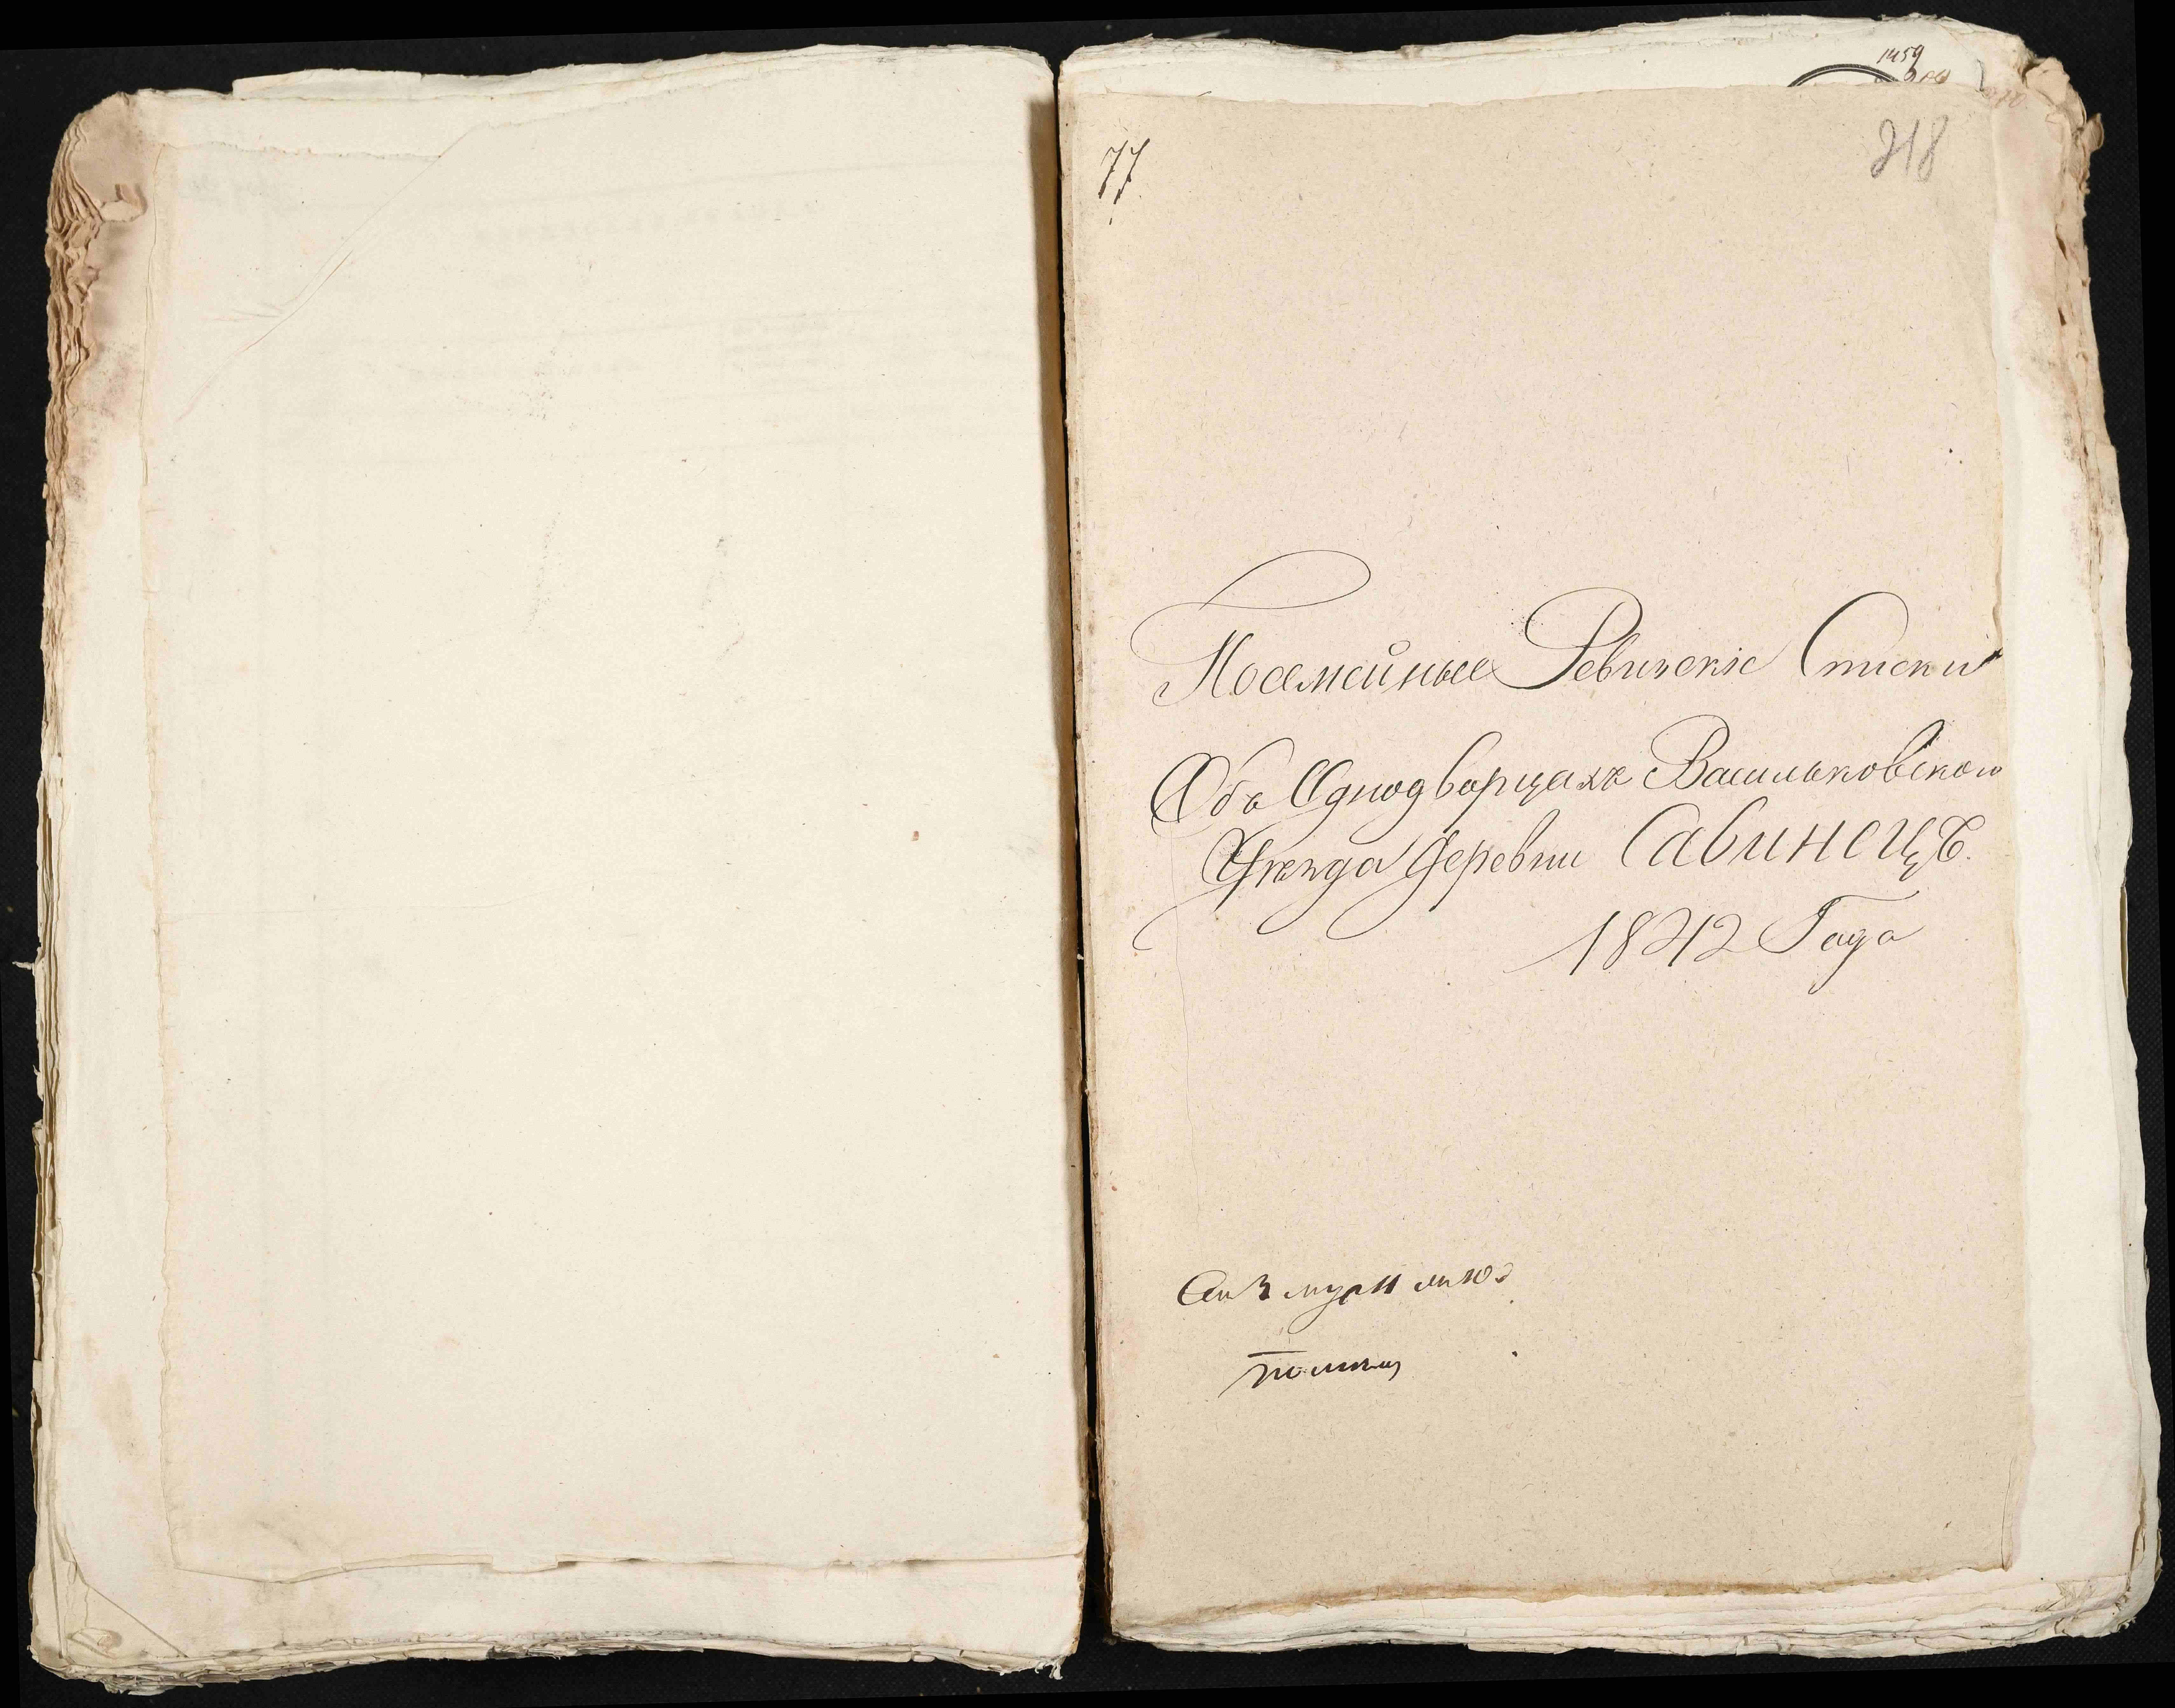 1459
77
218
Посемейные Ревизскіе Списки
Объ Однодворцахъ Васильковского
Уѣзда Деревни Савинецъ.
1842 Года